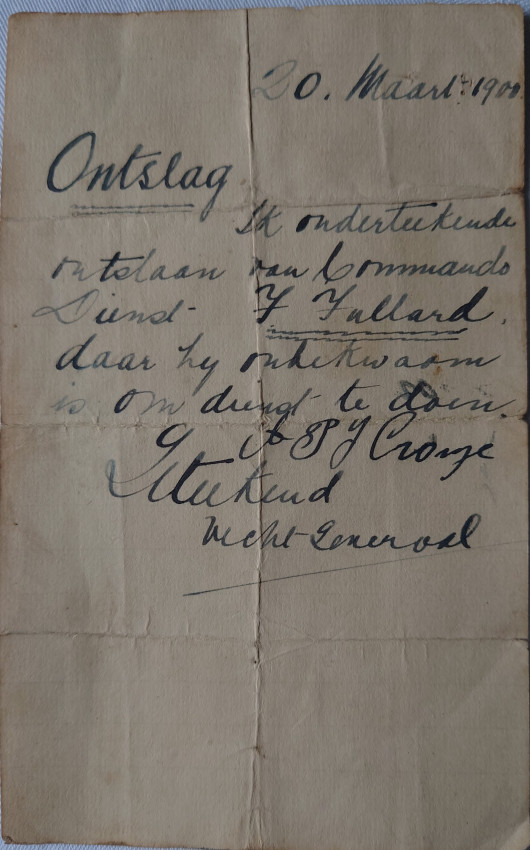 20. Maart 1900
Ontslag
Ik onderteekende
ontslaan van Commando
Dienst F Fullard.
daar hy onbekwaam
is om dienst te doen.
A P J Cronje
Geteekend
Vecht-Generaal